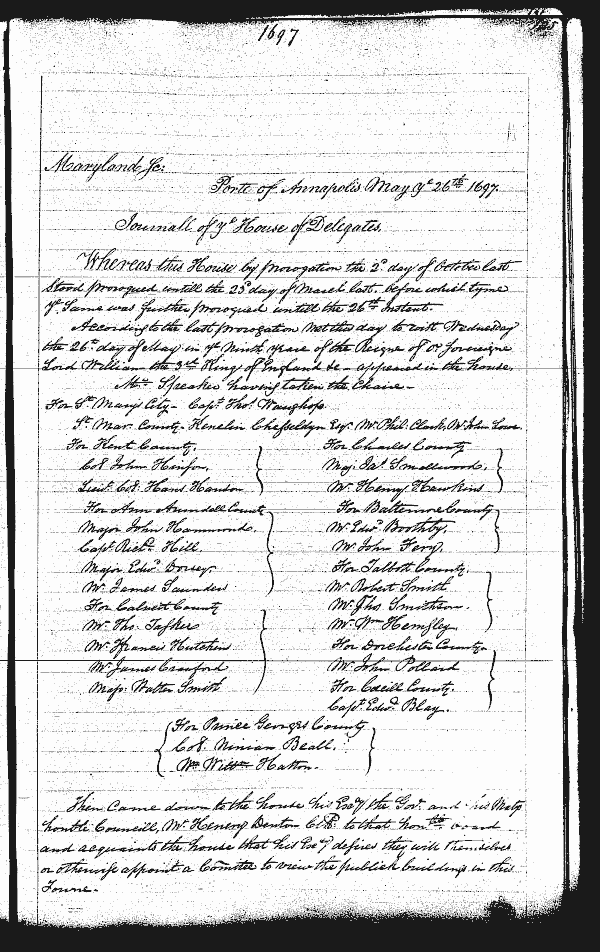 1697
Maryland Sc:
Porte of Annapolis May yᵉ 26ᵗʰ 1697.
Journall of yᵉ House of Delegates.
Whereas this House by prorogation the 2ᵈ day of October last
Stood prorogued untill the 25ᵗ day of March last, before which tyme
yᵉ Same was further prorogued untill the 26ᵗʰ Instant.
According to the last prorogation Met this day to witt Wednesday
the 26ᵗ day of May in yᵉ Ninth yeare of the Reigne of oʳ Sovereigne
Lord William the 3ʳᵈ King of England &c - appeared in the house,
Mʳ Speaker having taken the Chaire -
For Sᵗ Marys City - Capᵗ Thoˢ Waughop.
Sᵗ Mar. County - Kenelm Cheseldyn Esqʳ Mʳ Phil. Clark, Mʳ John Lowe.
For Kent County,
Coˡ John Hinson,
Lieuᵗ Coˡ Hans Hanson
For Ann Arundell County
Major John Hammond.
Capᵗ Richᵈ Hill.
Major Edwᵈ Dorsey.
Mʳ James Saunders
For Calvert County
Mʳ Tho. Tasker
Mʳ Francis Hutchins
Mʳ James Crawford
Majoʳ Walter Smith
For Charles County
Maj. Jaˢ Smallwood,
Mʳ Henry Hawkins
For Baltemore County
Mʳ Edwᵈ Boothby,
Mʳ John Fery.
For Talbott County.
Mʳ Robert Smith
Mʳ Tho. Smithson.
Mʳ Wᵐ Hemsley
For Dorchester County
Mʳ John Pollard
For Cecill County.
Capᵗ Edwᵈ Blay.
For Prince Georges County
Coˡ. Ninian Beall.
Mʳ Willᵐ Hatton.
Then came down to the house his Exᶜʸ the Govʳ and his Matys
honble Councill, Mʳ Henery Denton Clk to that honᵇˡᵉ board
and acquaints the house that his Exᶜʸ desires they will themselves
or otherwise appoint a Comittee to view the publick buildings in this
Towne -